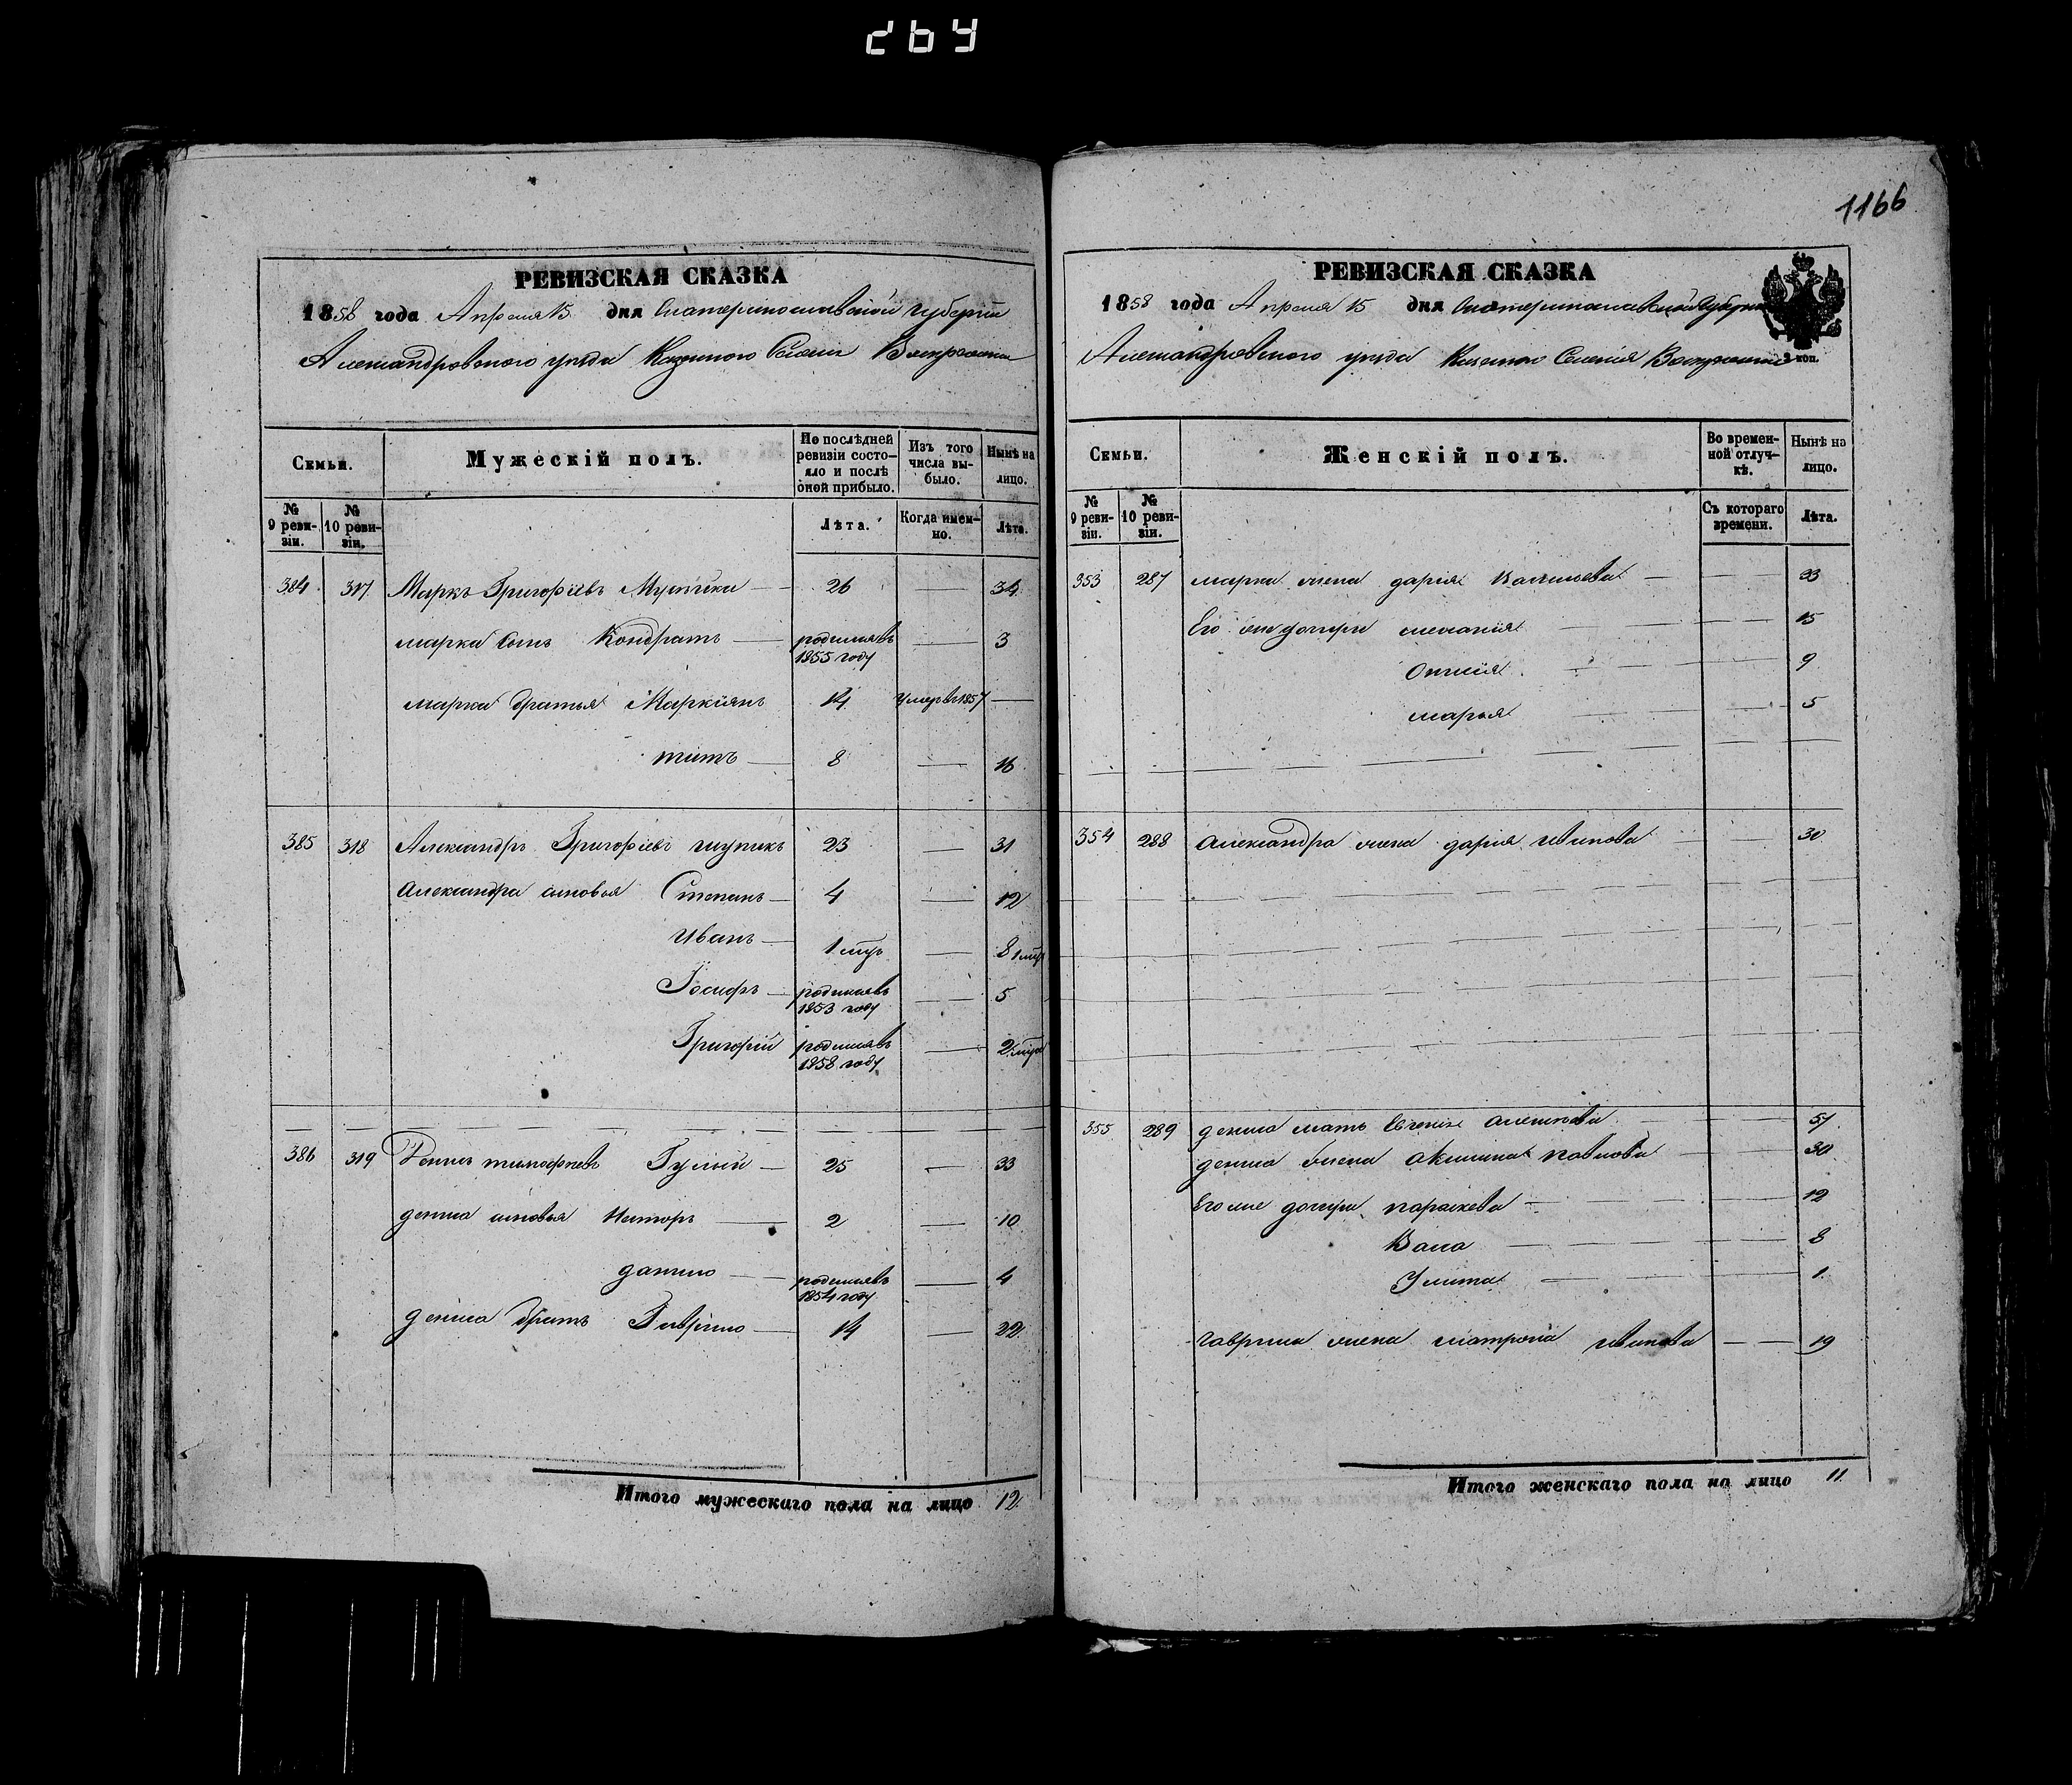 264
РЕВИЗСКАЯ СКАЗКА
1858 года Апреля 15 дня Екатеринославской Губернии
Александровского уезда Казенного Селения Воскресенки
Семьи.
Мужескій полъ.
По послѣдней ревизіи состояло и послѣ оной прибыло.
Изъ того числа выбыло.
Нынѣ на лицо.
№ 9 ревизіи.
№ 10 ревизіи.
Лѣта.
Когда именно.
Лѣта.
384 317 Маркъ Григоріевъ 26 — 34
марка сынъ Кондратъ — родился въ 1855 году — 3
марка братья Маркіянъ 14 Умеръ 1857 —
титъ — 8 — 16
385 318 Александръ Григоріевъ 23 — 31
Александра сыновья Степанъ — 4 — 12
Иванъ — 1 мць — 8 1 мць
Іосифъ — родился въ 1853 году — 5
Григорій родился въ 1858 году — 2 мца
386 319 Денисъ тимофеевъ Гулый — 25 — 33
дениса сыновья Несторъ — 2 — 10
данило — родился въ 1854 году — 4
дениса братъ Гаврило — 14 — 22
Итого мужескаго пола на лицо 12
1166
РЕВИЗСКАЯ СКАЗКА
1858 года Апреля 15 дня Екатеринославской Губернии
2 коп.
Александровского уезда Казенного Селения Воскресенки
Семьи.
Женскій полъ.
Во временной отлучкѣ.
Нынѣ на лицо.
№ 9 ревизіи.
№ 10 ревизіи.
Съ котораго времени.
Лѣта.
353 287 марка жена дарія Васильева — 33
Его же дочери меланія — 15
— 9
марья — 5
354 288 Александра жена дарія иванова — 30
355 289 дениса мать Евгенія Алексѣева — 57
дениса жена Акилина павлова — 30
Его же дочери параскева — 12
Васа — 8
Улита — 1
гаврила жена матрона иванова — 19
Итого женскаго пола на лицо 11